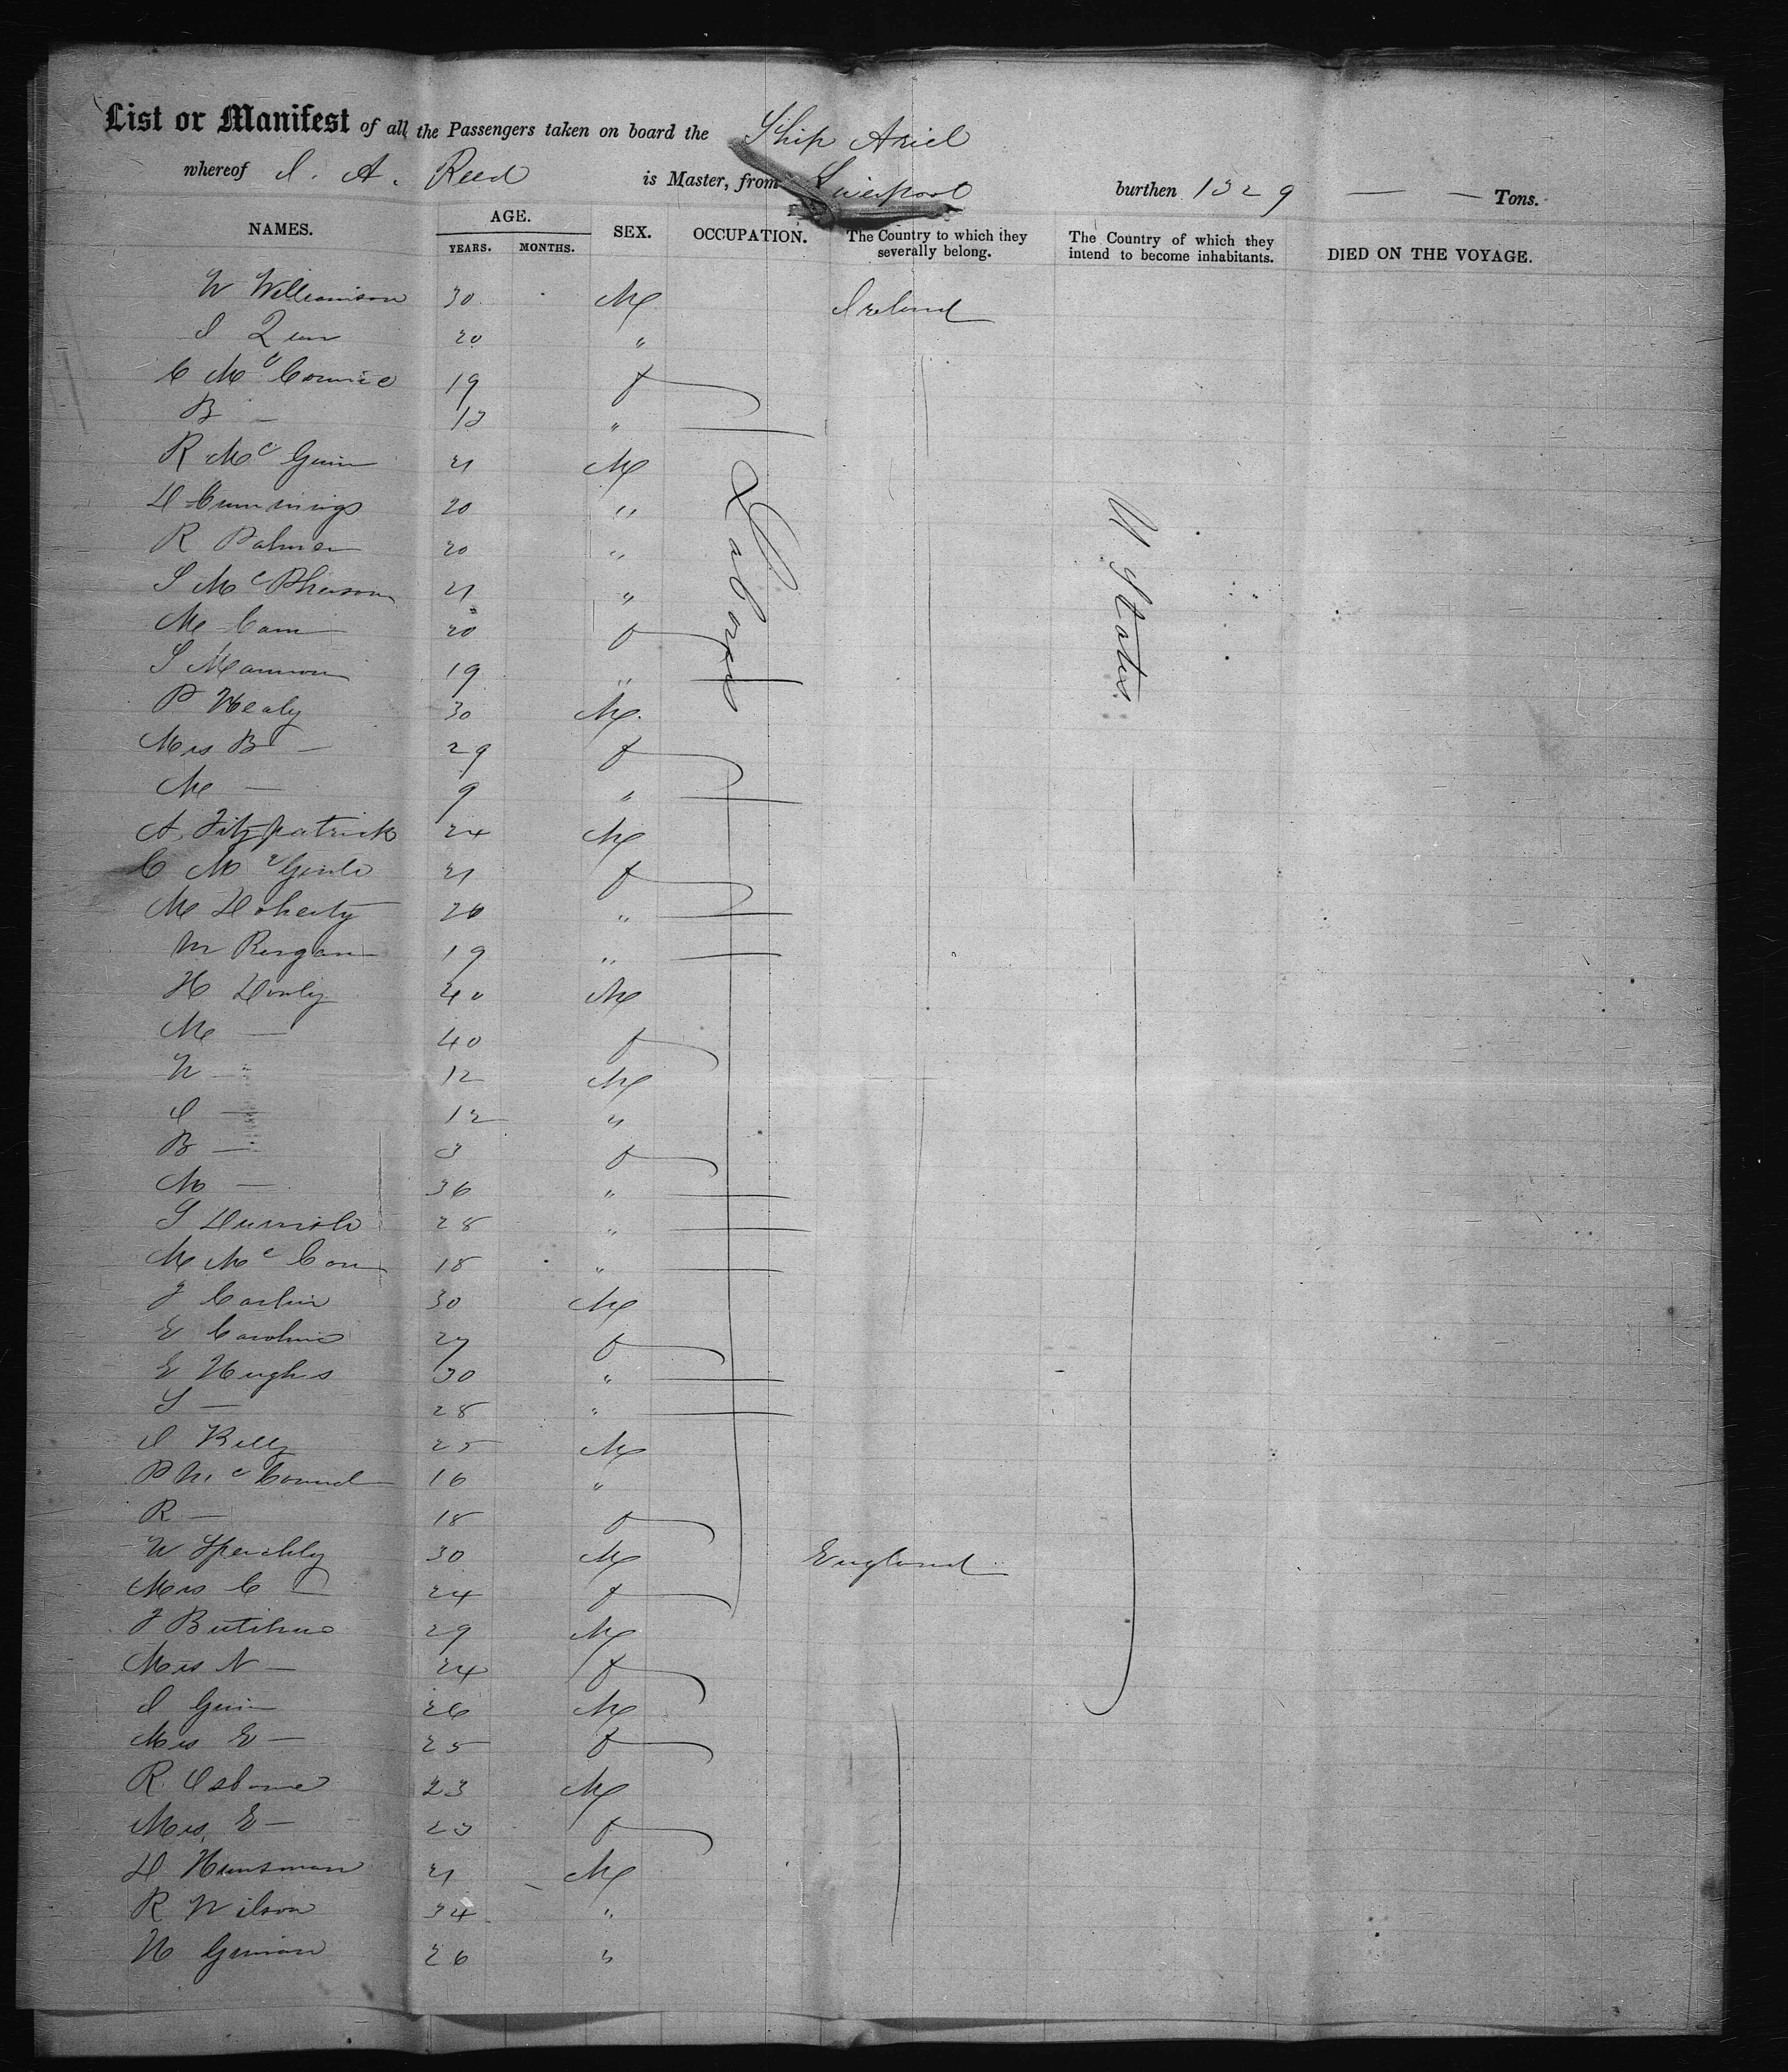 List or Manifest of all the Passengers taken on board the Ship Ariel
whereof I. A. Reed is Master, from Liverpool burthen 1329 — — Tons.
NAMES. AGE. YEARS. MONTHS. SEX. OCCUPATION. The Country to which they severally belong. The Country of which they intend to become inhabitants. DIED ON THE VOYAGE.
W Williamson 30 M Ireland
I 20 "
C 19 f
B — 13 "
R Mc Guin 21 M
D Cummings 20 "
R Palmer 20 "
S Mc Pherson 21 "
M Cam 20 f
S 19 "
P Healy 30 M
Mrs B — 29 f
M — 9 "
A Fitzpatrick 24 M
C Mc 21 f
M Doherty 20 "
M Reigan 19 "
H 40 M
M — 40 f
W — 12 M
I — 12 "
B — 3 f
M — 36 "
S 28 "
M Mc 18 "
J Carlin 30 M
E Caroline 27 f
E Hughes 30 "
S — 28 "
I Kelly 25 M
P Mc 16 "
R — 18 f
W 30 M England
Mrs C — 24 f
J 29 M
Mrs N — 24 f
I Guin 26 M
Mrs E — 25 f
R. Osborne 23 M
Mrs E — 23 f
D Hunsman 21 M
R Wilson 34 "
H 26 "
Laborers
U States